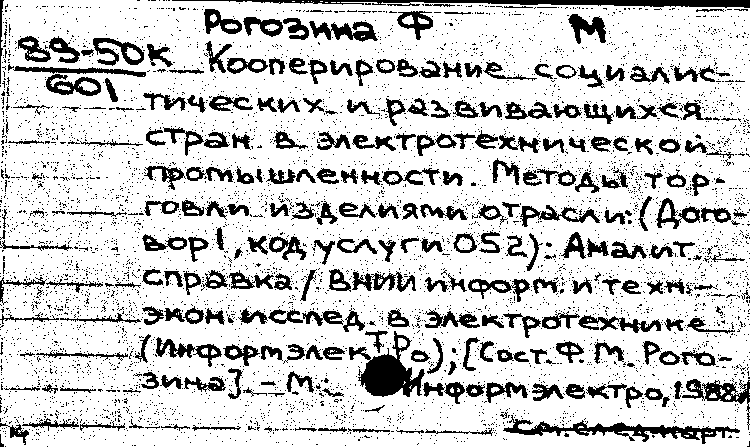 Рогозина Ф М
89-50к
601
Кооперирование социалис-
тических и развивающихся
стран в электротехнической
промышленности. Методы тор-
говли изделиями отрасли: (Дого-
вор 1, код услуги 052): Аналит.
справка / ВНИИ информ. и техн.-
экон. исслед. в электротехнике
(Информэлектро); [Сост. Ф. М. Рого-
зина]. - М.: Информэлектро, 1988.
См. след. карт.